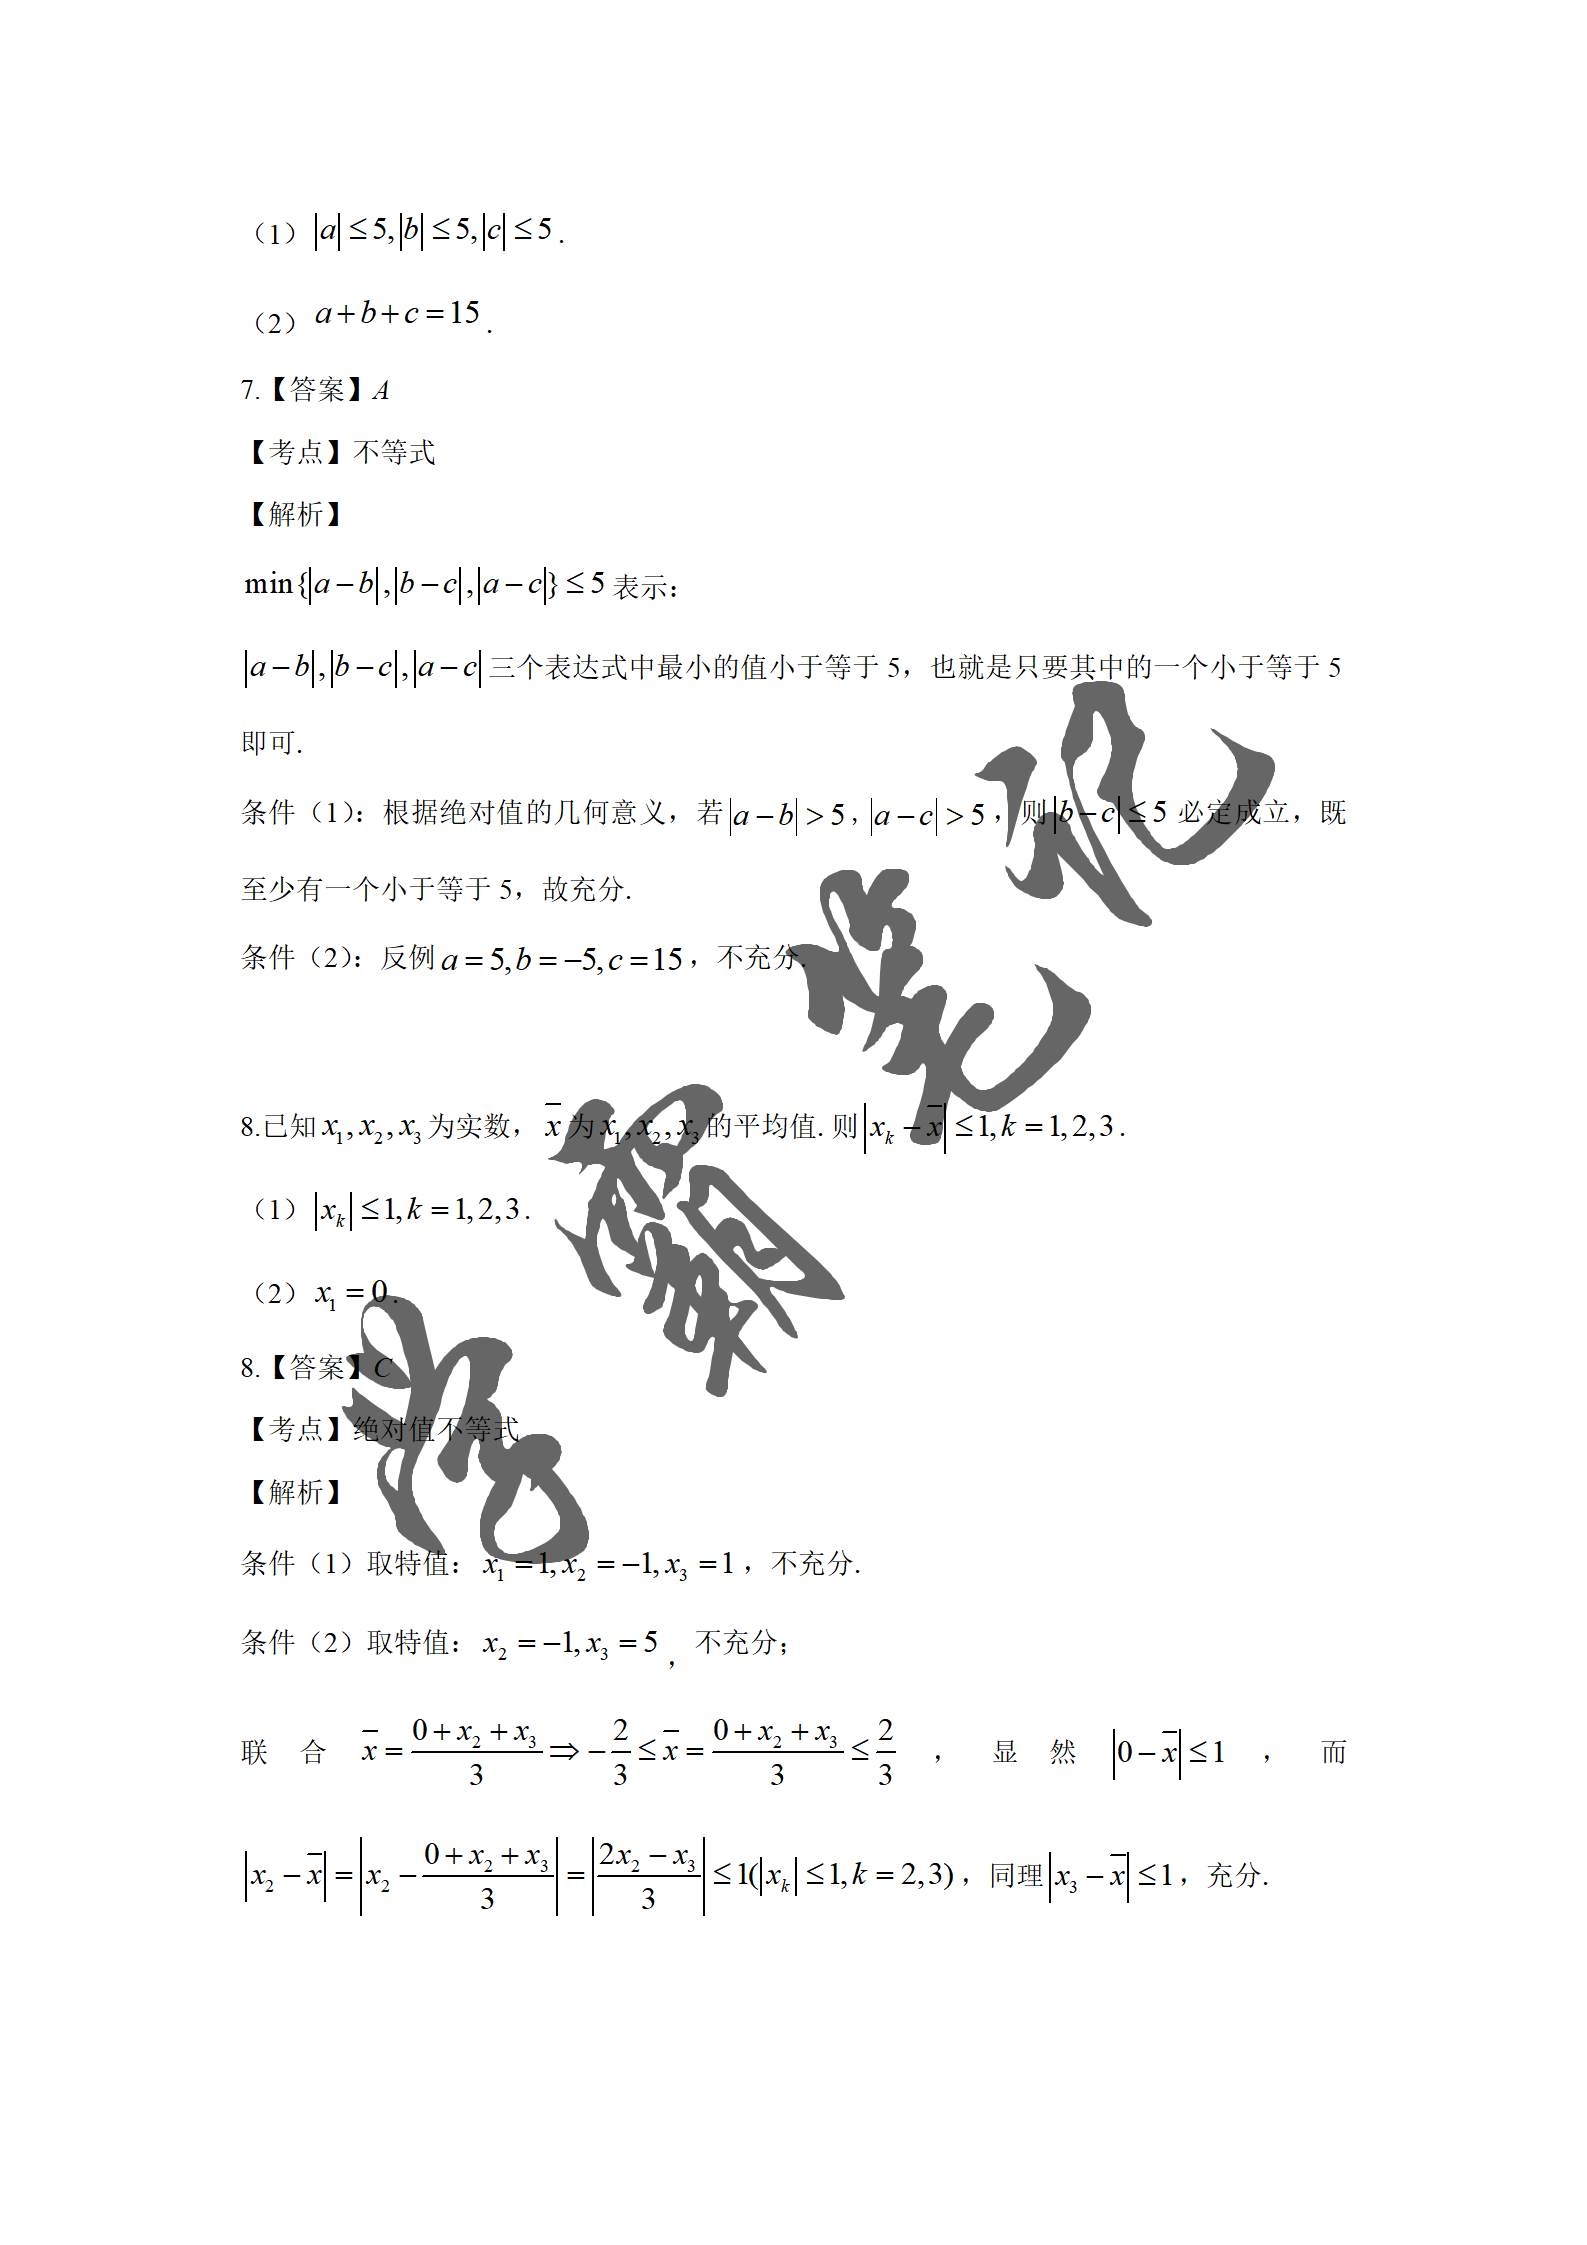 （1）|a|≤5,|b|≤5,|c|≤5.
（2）a+b+c=15.
7.【答案】A
【考点】不等式
【解析】
min{|a−b|,|b−c|,|a−c|}≤5表示：
|a−b|,|b−c|,|a−c|三个表达式中最小的值小于等于5，也就是只要其中的一个小于等于5
即可.
条件（1）：根据绝对值的几何意义，若|a−b|>5,|a−c|>5，则|b−c|≤5必定成立，既
至少有一个小于等于5，故充分.
条件（2）：反例a=5,b=−5,c=15，不充分.
8.已知x₁,x₂,x₃为实数，x̄为x₁,x₂,x₃的平均值.则|xₖ−x̄|≤1,k=1,2,3.
（1）|xₖ|≤1,k=1,2,3.
（2）x₁=0.
8.【答案】C
【考点】绝对值不等式
【解析】
条件（1）取特值：x₁=1,x₂=−1,x₃=1，不充分.
条件（2）取特值：x₂=−1,x₃=5，不充分；
联合x̄=(0+x₂+x₃)/3⇒−2/3≤x̄=(0+x₂+x₃)/3≤2/3，显然|0−x̄|≤1，而
|x₂−x̄|=|x₂−(0+x₂+x₃)/3|=|(2x₂−x₃)/3|≤1(|xₖ|≤1,k=2,3)，同理|x₃−x̄|≤1，充分.
学霸笔记